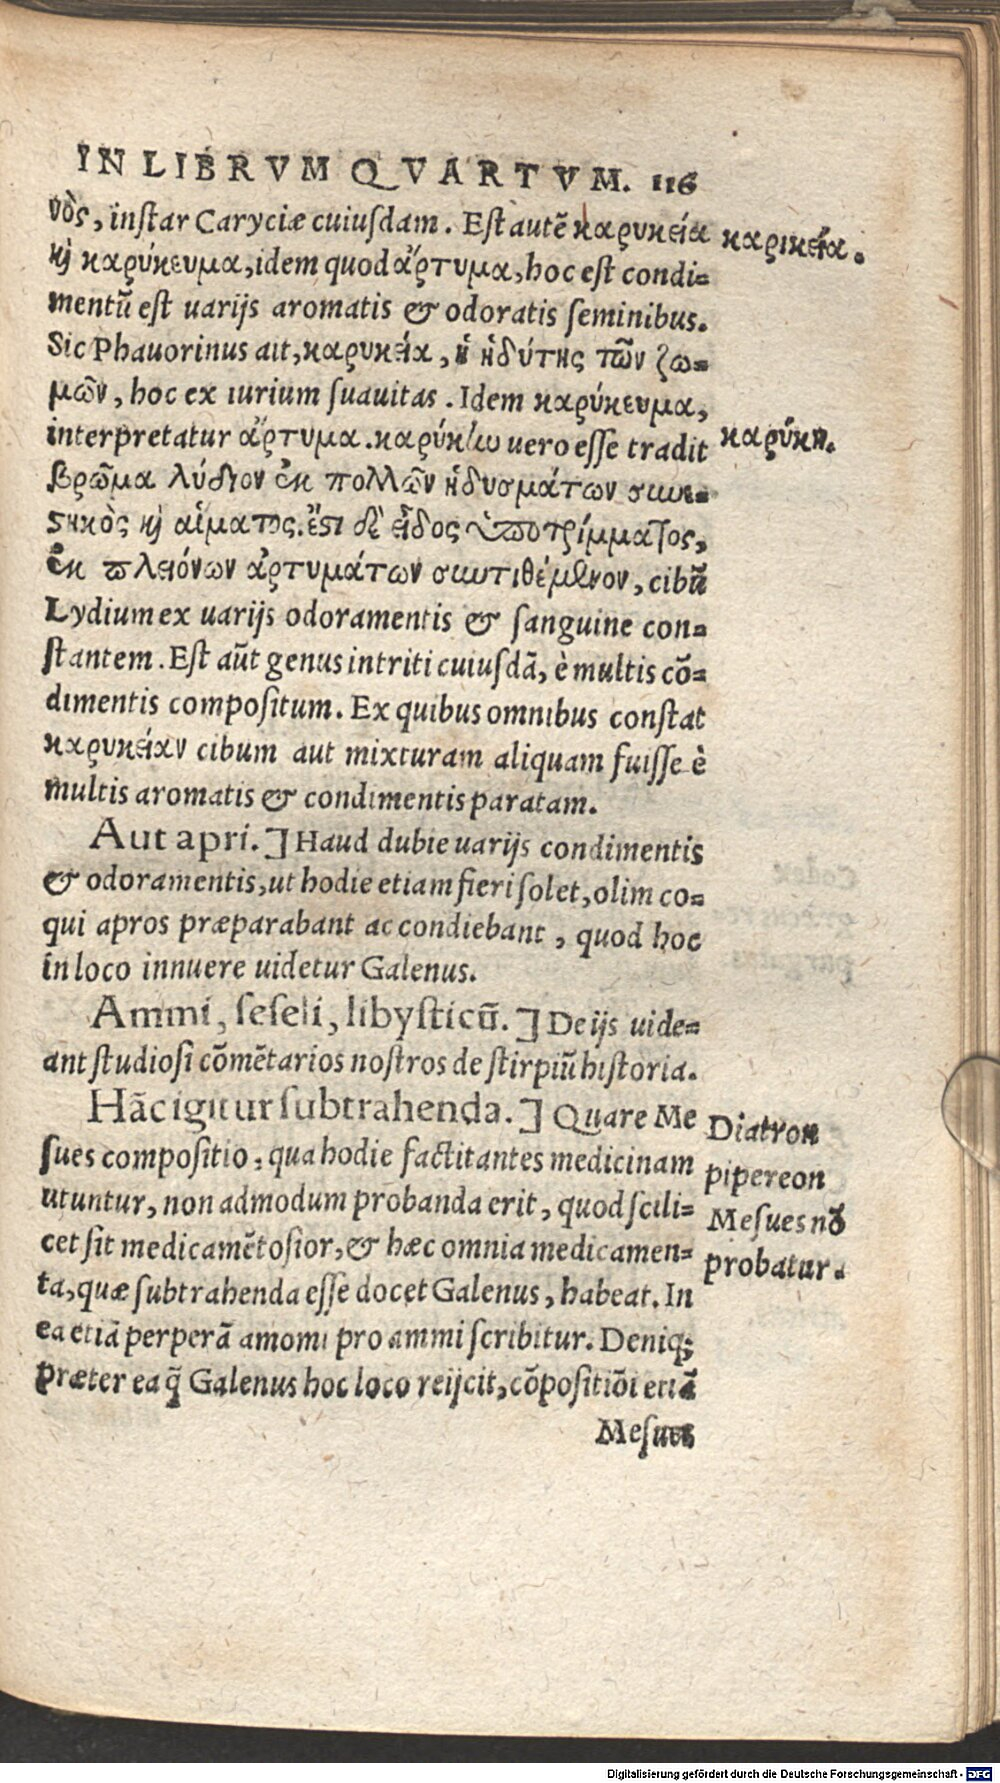 IN LIBRVM QVARTVM. 116
νὸς, instar Caryciæ cuiusdam. Est autē καρυκεία
καρικεία.
καὶ καρύκευμα, idem quod ἄρτυμα, hoc est condi-
mentū est uarijs aromatis & odoratis seminibus.
Sic Phauorinus ait, καρυκεία, ἡ ἡδύτης τῶν ζω-
μῶν, hoc ex iurium suauitas. Idem καρύκευμα,
interpretatur ἄρτυμα. καρύκην uero esse tradit
καρύκη.
βρῶμα λύδιον ἐκ πολλῶν ἡδυσμάτων συνε-
στηκὸς καὶ αἵματος. ἔστι δὲ εἶδος ὑποτρίμματος,
ἐκ πλειόνων ἀρτυμάτων συντιθέμενον, cibū
Lydium ex uarijs odoramentis & sanguine con-
stantem. Est aūt genus intriti cuiusdā, è multis cō-
dimentis compositum. Ex quibus omnibus constat
καρυκείαν cibum aut mixturam aliquam fuisse è
multis aromatis & condimentis paratam.
Aut apri.] Haud dubie uarijs condimentis
& odoramentis, ut hodie etiam fieri solet, olim co-
qui apros præparabant ac condiebant, quod hoc
in loco innuere uidetur Galenus.
Ammi, seseli, libysticū.] De ijs uide-
ant studiosi cōmētarios nostros de stirpiū historia.
Hāc igitur subtrahenda.] Quare Me
sues compositio, qua hodie factitantes medicinam
utuntur, non admodum probanda erit, quod scili-
cet sit medicamētosior, & hæc omnia medicamen-
ta, quæ subtrahenda esse docet Galenus, habeat. In
ea etiā perperā amomi pro ammi scribitur. Deniq;
præter ea q̄ Galenus hoc loco reijcit, cōpositiōi etiā
Diatron
pipereon
Mesues nō
probatur.
Mesues
Digitalisierung gefördert durch die Deutsche Forschungsgemeinschaft - DFG